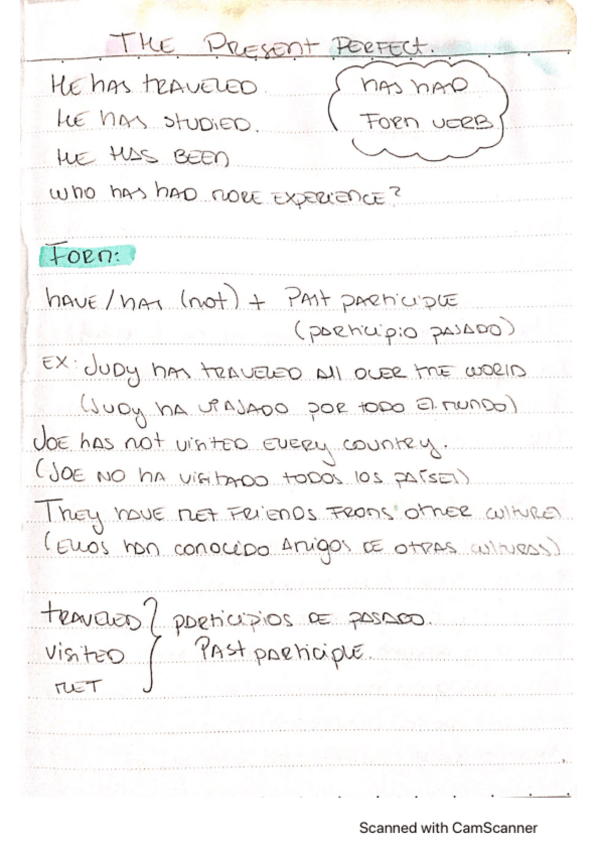 THE PRESENT PERFECT.
HE HAS TRAVELED
HE HAS STUDIED.
HE HAS BEEN
WHO HAS HAD MORE EXPERIENCE?
HAS HAD
FORM VERB
FORM:
HAVE/HAS (not) + PAST PARTICIPLE
(PARTICIPIO PASADO)
EX: JUDY HAS TRAVELED All OVER THE WORLD
(JUDY HA VIAJADO POR TODO El MUNDO)
JOE HAS not VISITED EVERY COUNTRY.
(JOE NO HA VISITADO TODOS lOS PAÍSES)
THEY HAVE MET FRIENDS FROMS OTHER CULTURES
(EllOS HAN CONOCIDO AMIGOS DE OTRAS CULTURAS)
TRAVELED } PARTICIPIOS DE PASADO.
VISITED PAST PARTICIPLE.
MET
Scanned with CamScanner